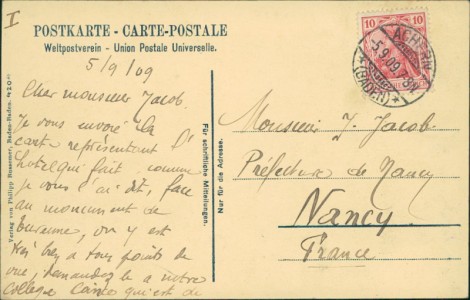 I
POSTKARTE - CARTE-POSTALE
Weltpostverein - Union Postale Universelle.
5/9/09
Cher monsieur Jacob.
Je vous envoie la
carte représentant l'
hotel qui fait comme
je vous l'ai dit, face
au monument de
Turenne, on y est
très bien à tous points de
vue, demandez le a notre
collègue qui est de
Für schriftliche Mitteilungen.
Nur für die Adresse.
Verlag von Philipp Bussemer, Baden-Baden.
10 10
ACHERN
5.9.09
(BADEN)
Monsieur J. Jacob
Préfecture de Nancy
Nancy
France